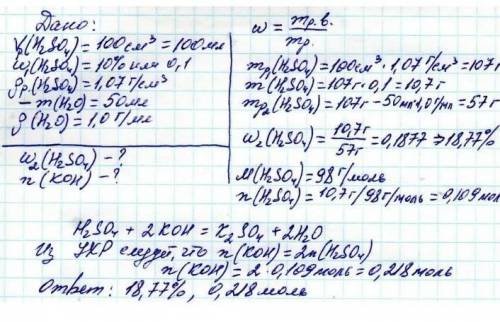 Дано:
V(H₂SO₄) = 100 см³ = 100 мл
ω₁(H₂SO₄) = 10% или 0,1
ρр.(H₂SO₄) = 1,07 г/см³
– m(H₂O) = 50 мл
ρ(H₂O) = 1,0 г/мл
ω₂(H₂SO₄) – ?
n(KOH) – ?
ω = mр.в. / mр.
mр₁(H₂SO₄) = 100 см³ · 1,07 г/см³ = 107 г
m(H₂SO₄) = 107 г · 0,1 = 10,7 г
mр₂(H₂SO₄) = 107 г – 50 мл · 1,0 г/мл = 57 г
ω₂(H₂SO₄) = 10,7 г / 57 г = 0,1877 ⇒ 18,77%
M(H₂SO₄) = 98 г/моль
n(H₂SO₄) = 10,7 г / 98 г/моль = 0,109 моль
H₂SO₄ + 2KOH = K₂SO₄ + 2H₂O
Из УХР следует, что n(KOH) = 2n(H₂SO₄)
n(KOH) = 2 · 0,109 моль = 0,218 моль
Ответ: 18,77%, 0,218 моль